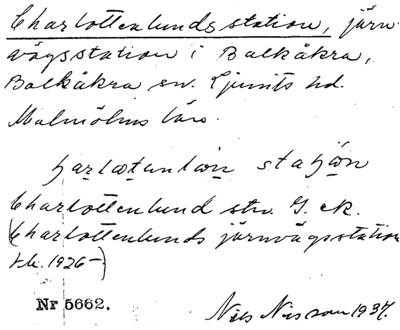 Charlottenlunds station, järn-
vägsstation i Balkåkra,
Balkåkra sn. Ljunits hd.
Malmöhus län.
station
Charlottenlund stn. G. ek.
(Charlottenlunds järnvägsstation
1926–)
Nr 5662.
Nils Nilsson 1937.